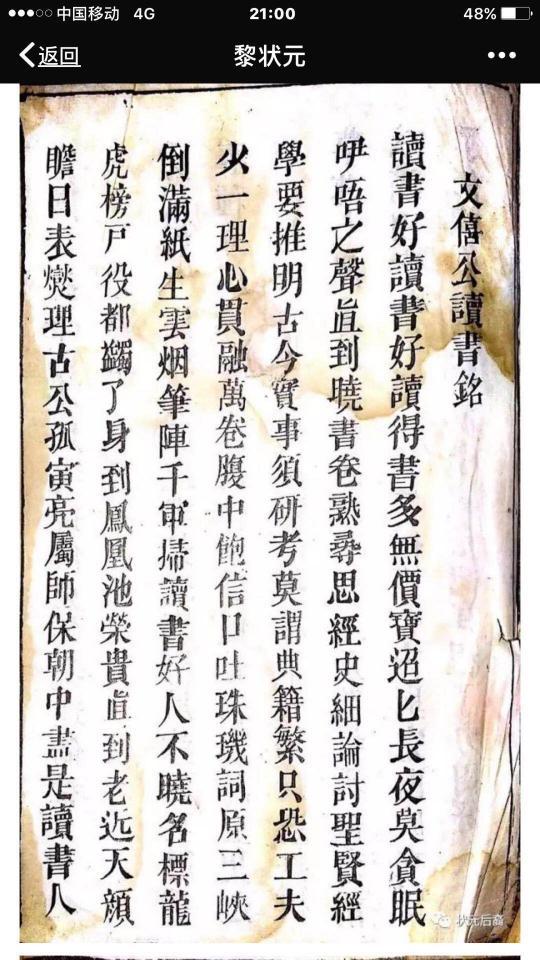 中国移动 4G 21:00 48%
返回 黎状元
文僖公讀書銘
讀書好讀書好讀得書多無價寶迢匕長夜莫貪眠
咿唔之聲直到曉書卷熟尋思經史細論討聖賢經
學要推明古今實事須研考莫謂典籍繁只恐工夫
火一理心貫融萬卷腹中飽信口吐珠璣詞原三峽
倒滿紙生雲烟筆陣千軍掃讀書好人不曉名標龍
虎榜戸役都蠲了身到鳳凰池榮貴直到老近天顔
瞻日表爕理古公孤寅亮屬師保朝中盡是讀書人
状元后裔